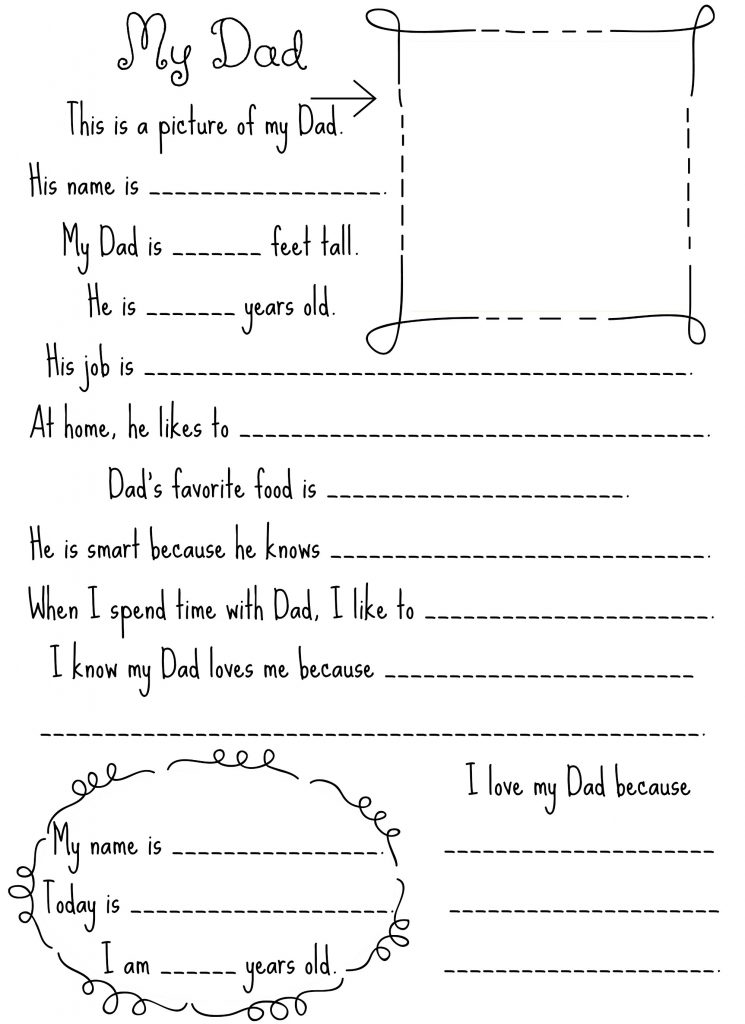 My Dad
This is a picture of my Dad.
His name is __________________.
My Dad is _______ feet tall.
He is _______ years old.
His job is __________________________________________.
At home, he likes to ____________________________________.
Dad's favorite food is _______________________.
He is smart because he knows _____________________________.
When I spend time with Dad, I like to ______________________.
I know my Dad loves me because ________________________
___________________________________________________.
My name is ________________.
Today is ____________________.
I am ______ years old.
I love my Dad because
_____________________
_____________________
_____________________.